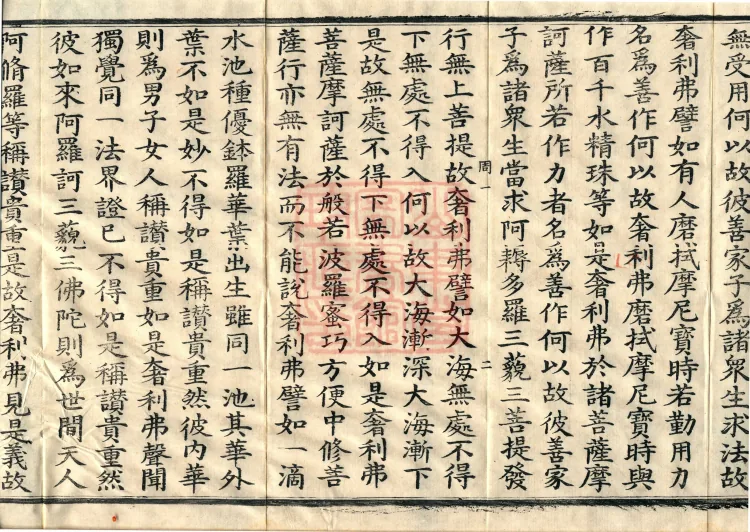 無受用何以故彼善家子爲諸衆生求法故
奢利弗譬如有人磨拭摩尼寶時若勤用力
名爲善作何以故奢利弗磨拭摩尼寶時與
作百千水精珠等如是奢利弗於諸菩薩摩
訶薩所若作力者名爲善作何以故彼善家
子爲諸衆生當求阿耨多羅三藐三菩提發
周一
二
行無上菩提故奢利弗譬如大海無處不得
下無處不得入何以故大海漸深大海漸下
是故無處不得下無處不得入如是奢利弗
菩薩摩訶薩於般若波羅蜜巧方便中修善
薩行亦無有法而不能說奢利弗譬如一滴
水池種優鉢羅華葉出生雖同一池其華外
葉不如是妙不得如是稱讃貴重然彼內華
則爲男子女人稱讃貴重如是奢利弗聲聞
獨覺同一法界證已不得如是稱讃貴重然
彼如來阿羅訶三藐三佛陀則爲世間天人
阿脩羅等稱讃貴重是故奢利弗見是義故